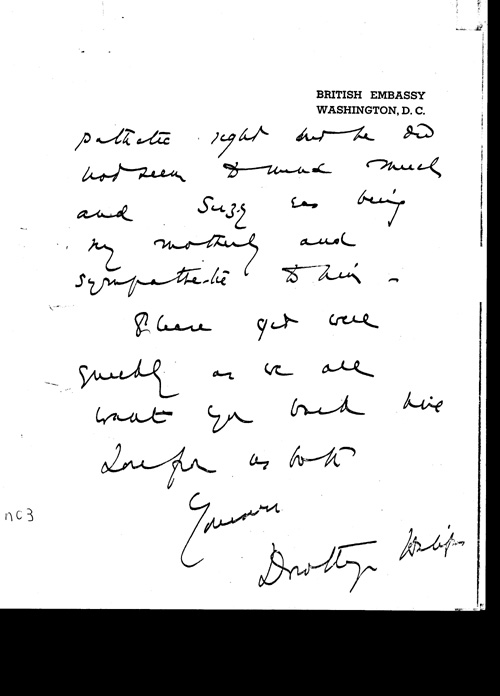 BRITISH EMBASSY
WASHINGTON, D. C.
pathetic sight but he did
not seem to mind much
and Suzy was being
my motherly and
sympathetic to him -
Please get well
quickly as we all
want you back here
Love from us both
Yours ever
Dorothy
nc3